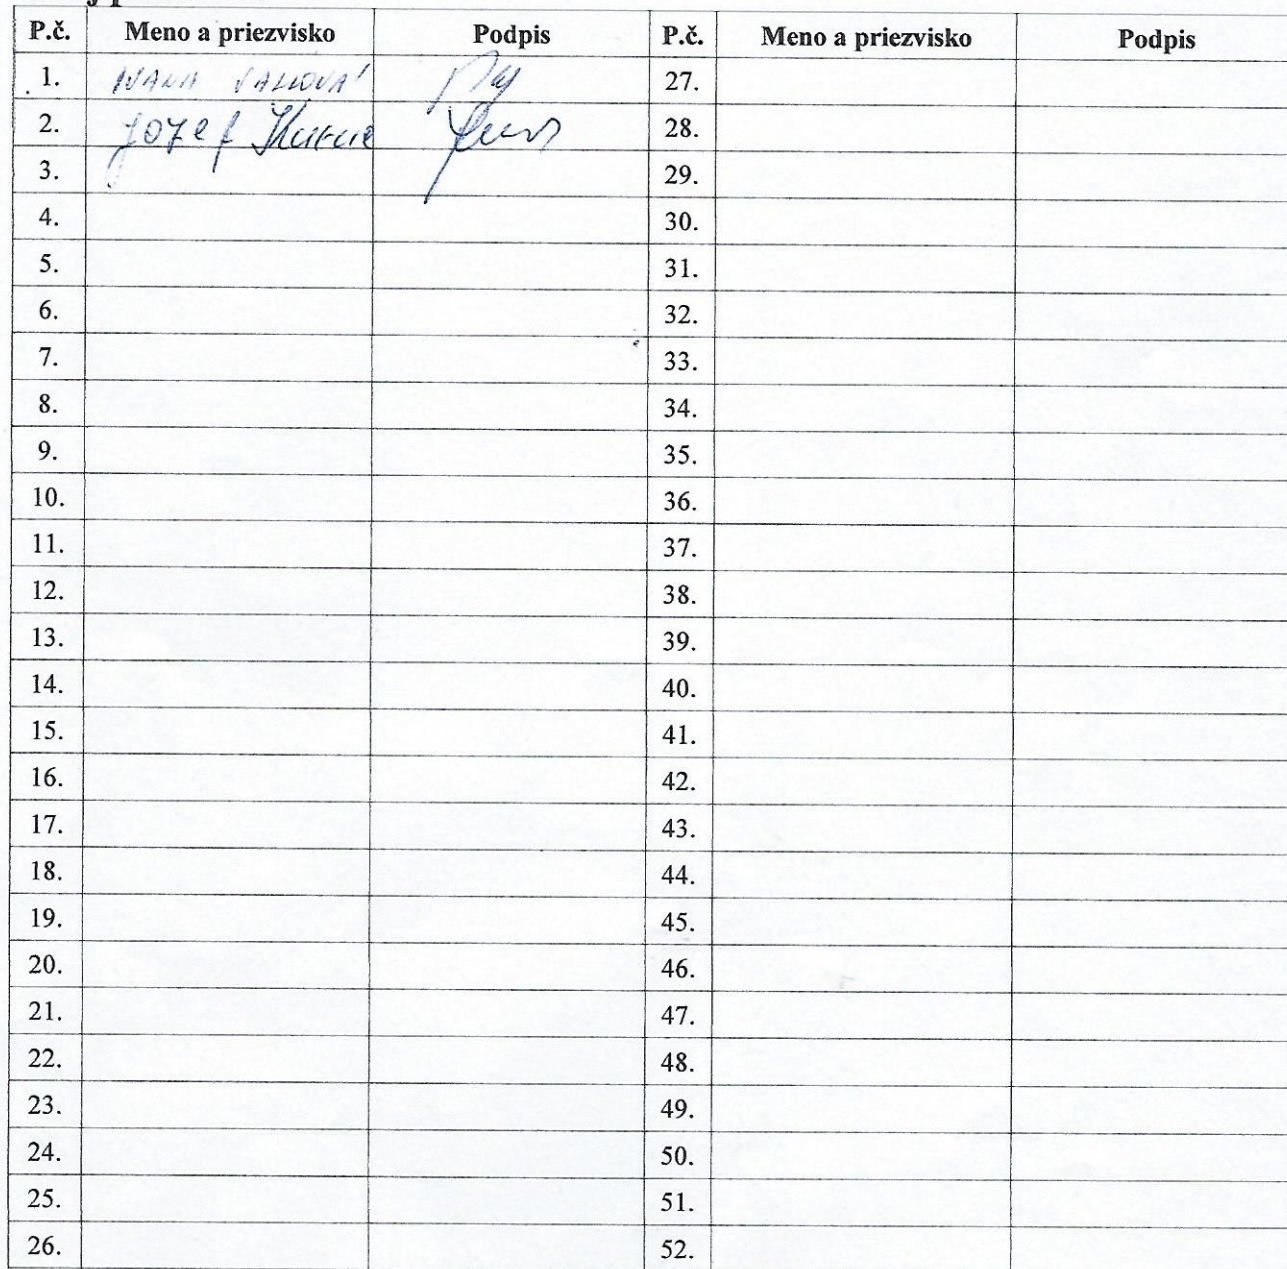 P.č. Meno a priezvisko Podpis P.č. Meno a priezvisko Podpis
1. IVANA 27.
2. Jozef 28.
3. 29.
4. 30.
5. 31.
6. 32.
7. 33.
8. 34.
9. 35.
10. 36.
11. 37.
12. 38.
13. 39.
14. 40.
15. 41.
16. 42.
17. 43.
18. 44.
19. 45.
20. 46.
21. 47.
22. 48.
23. 49.
24. 50.
25. 51.
26. 52.